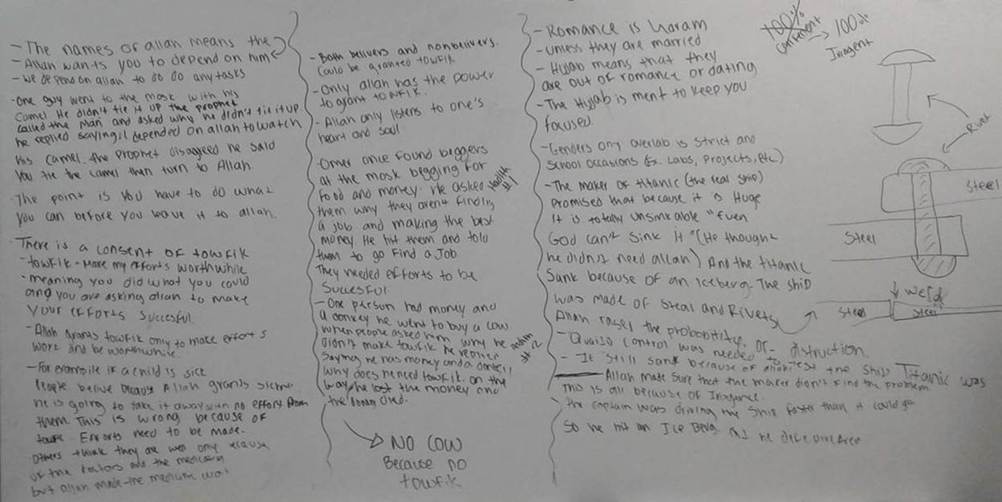 - The names of allah means the
- Allah wants you to depend on him
- we depend on allah to do do any tasks
- One guy went to the mosk with his
camel He didn't tie it up the prophet
called the man and asked why he didn't tie it up
he replied saying, i depended on allah to watch
his camel. the Prophet disagreed he said
you tie the camel then turn to Allah.
The point is you have to do what
you can before you leave it to allah.
There is a consent of towfik
- towfik - Make my efforts worthwhile
- meaning you did what you could
and you are asking allah to make
your efforts succesful
- Allah grants towfik only to make efforts
work and be worthwhile.
- For example if a child is sick
People belive because Allah grants sickness
he is going to take it away with no effort from
them This is wrong because of
towfik. Efforts need to be made.
Others think they are well only because
of the doctors and the medicine
but allah made the medicine
- Both belivers and nonbelivers.
could be granted towfik.
- Only allah has the power
to grant towfik.
- Allah only listens to one's
heart and soul
Omer once found beggers
at the mosk begging for
food and money. He asked
them why they arent finding
a job and making the best
money. He hit them and told
them to go find a Job
They needed efforts to be
Succesful
- One person had money and
a donkey he went to buy a cow
when people asked him why he
didn't make towfik he replied
saying he has money and a donkey
why does he need towfik. on the
way he lost the money and
the donkey died.
NO COW
Because no
towfik
- Romance is haram
- unless they are married
- Hijab means that they
are out of romance or dating
- The Hijab is ment to keep you
focused.
- Genders only overlab is Strict and
School occasions (Ex. Labs, Projects, Etc.)
- The maker of titanic (the real ship)
Promised that because it is Huge
It is totally unsinkable "Even
God can't sink it" (He thought
he didn't need allah) And the titanic
Sank because of an iceberg. The ship
was made of Steal and Rivets
Allah raises the probability of distruction.
- Quality control was needed to
- It still sank because of
the ship Titanic was
- Allah made sure that the maker didn't find the problem
This is all because of
The captain was driving the ship faster than it could go
So he hit an Ice Berg
100%
100%
Rivet
Steel
Steel
weld
Steel
Steel